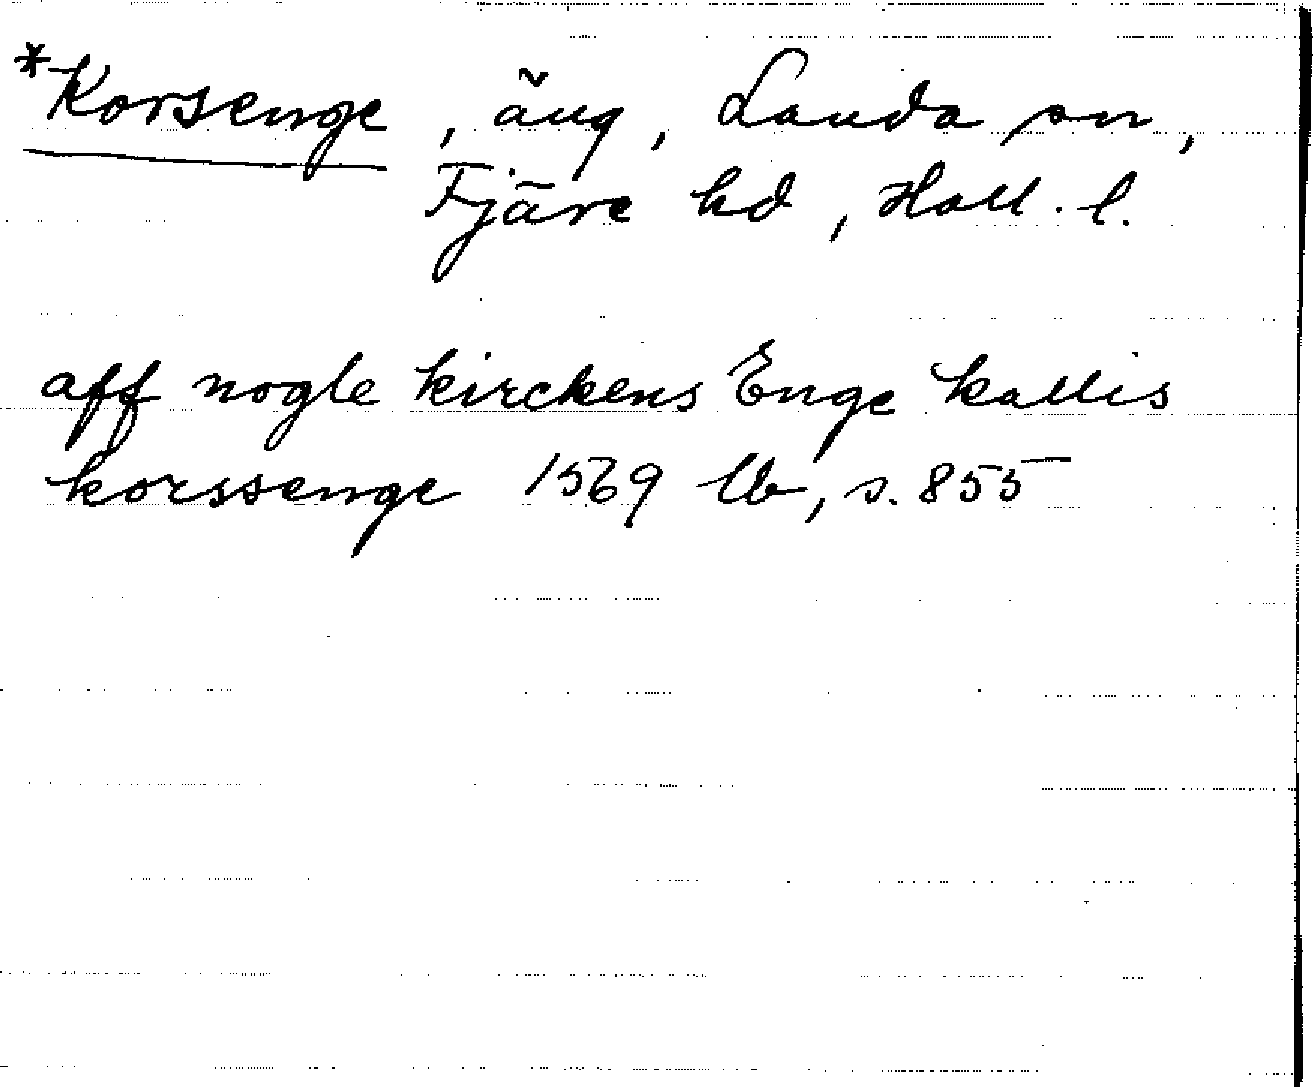 *Korsenge, äng, Landa sn,
Fjäre hd, Hall. l.
aff nogle kirckens Enge kallis
korssenge 1569 lb, s. 855